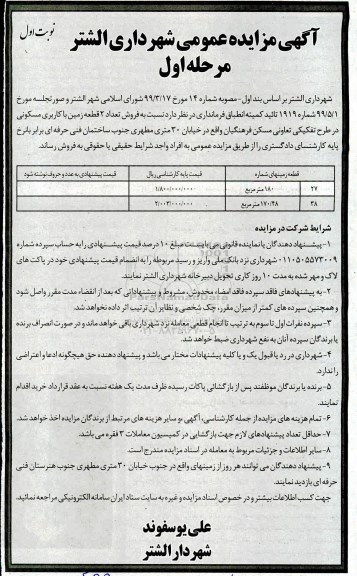 نوبت اول
آگهی مزایده عمومی شهرداری الشتر
مرحله اول
شهرداری الشتر بر اساس بند اول - مصوبه شماره ۱۴ مورخ ۹۹/۳/۱۷ شورای اسلامی شهر الشتر و صورتجلسه مورخ
۹۹/۵/۱ شماره ۱۹۱۹ تائید کمیته انطباق فرمانداری در نظر دارد نسبت به فروش تعداد ۲ قطعه زمین با کاربری مسکونی
در طرح تفکیکی تعاونی مسکن فرهنگیان واقع در خیابان ۳۰ متری مطهری جنوب ساختمان فنی حرفه ای برابر با نرخ
پایه کارشناسی دادگستری را از طریق مزایده عمومی به افراد واجد شرایط حقیقی یا حقوقی به فروش رساند.
قطعه زمینهای شماره قیمت پایه کارشناسی ریال قیمت پیشنهادی به عدد و حروف نوشته شود
۲۷ ۱۸۰ متر مربع ۱/۸۰۰/۰۰۰/۰۰۰
۳۸ ۱۷۰/۴۸ متر مربع ۲/۰۰۳/۰۰۰/۰۰۰
شرایط شرکت در مزایده
۱- پیشنهاد دهندگان یا نماینده قانونی می بایست مبلغ ۱۰ درصد قیمت پیشنهادی را به حساب سپرده شماره
۰۱۱۰۵۰۵۵۷۳۰۰۹ شهرداری نزد بانک ملی واریز و رسید مربوطه را به انضمام قیمت پیشنهادی خود در پاکت های
لاک و مهر شده به مدت ۱۰ روز کاری تحویل دبیرخانه شهرداری الشتر نمایند.
۲- به پیشنهادهای فاقد سپرده فاقد امضاء مخدوش، مشروط و پیشنهاداتی که بعد از انقضاء مدت مقرر واصل شود
و همچنین سپرده های کمتر از میزان مقرر، چک شخصی و نظایر آن ترتیب اثر داده نخواهد شد.
۳- سپرده نفرات اول تا سوم به ترتیب تا انجام قطعی معامله نزد شهرداری باقی خواهد ماند و در صورت انصراف برنده
یا برندگان سپرده آنان به نفع شهرداری ضبط خواهد شد.
۴- شهرداری در رد یا قبول یک و یا کلیه پیشنهادات مختار می باشد و پیشنهاد دهنده حق هیچگونه ادعا و اعتراضی
را ندارد.
۵- برنده یا برندگان موظفند پس از بازگشائی پاکات رسیده ظرف مدت یک هفته نسبت به عقد قرارداد خرید اقدام
نمایند.
۶- تمام هزینه های مزایده از جمله کارشناسی، آگهی ،و سایر هزینه های مرتبط از برندگان مزایده اخذ خواهد شد.
۷- حداقل تعداد پیشنهادهای لازم جهت بازگشایی در کمیسیون معاملات ۳ فقره می باشد.
۸- سایر اطلاعات و جزئیات مربوط به معامله در اسناد مزایده مندرج است.
۹- پیشنهاد دهندگان می توانند هر روز از زمینهای واقع در جنوب خیابان ۳۰ متری مطهری جنوب هنرستان فنی
حرفه ای بازدید نمایند.
جهت کسب اطلاعات بیشتر و در خصوص اسناد مزایده و غیره به سایت ستاد ایران سامانه الکترونیکی مراجعه نمائید.
علی یوسفوند
شهردار الشتر